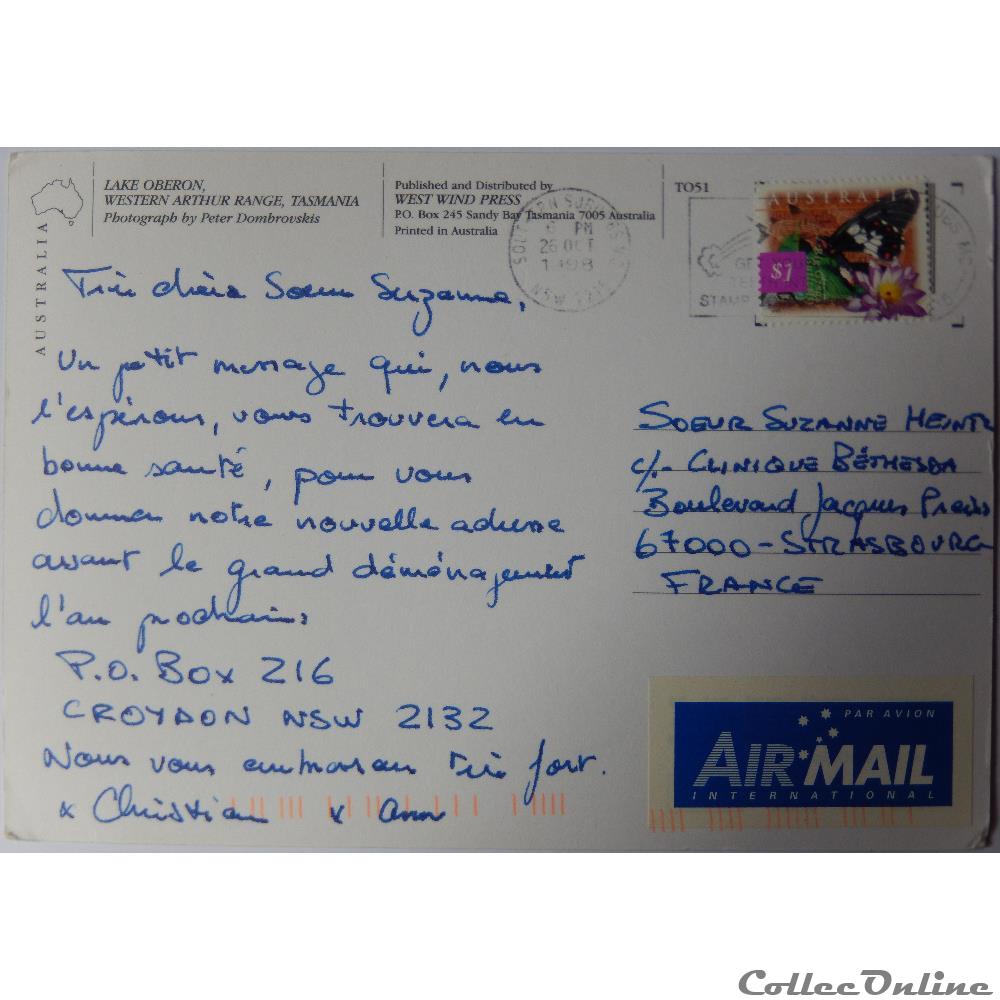 LAKE OBERON,
WESTERN ARTHUR RANGE, TASMANIA
Photograph by Peter Dombrovskis
AUSTRALIA
Published and Distributed by
WEST WIND PRESS
P.O. Box 245 Sandy Bay Tasmania 7005 Australia
Printed in Australia
TO51
SOUTHERN SUBURBS
6 PM
26 OCT
1998
NSW
STAMP
AUSTRALIA
$1
Très chère Soeur Suzanne,
Un petit message qui, nous
l'espérons, vous trouvera en
bonne santé, pour vous
donner notre nouvelle adresse
avant le grand déménagement
l'an prochain:
P.O. Box 216
CROYDON NSW 2132
Nous vous embrassons très fort.
x Christian x Ann
SOEUR SUZANNE HEINTZ
c/- CLINIQUE BÉTHESDA
Boulevard Jacques Preiss
67000 - STRASBOURG
FRANCE
PAR AVION
AIR MAIL
INTERNATIONAL
CollecOnline